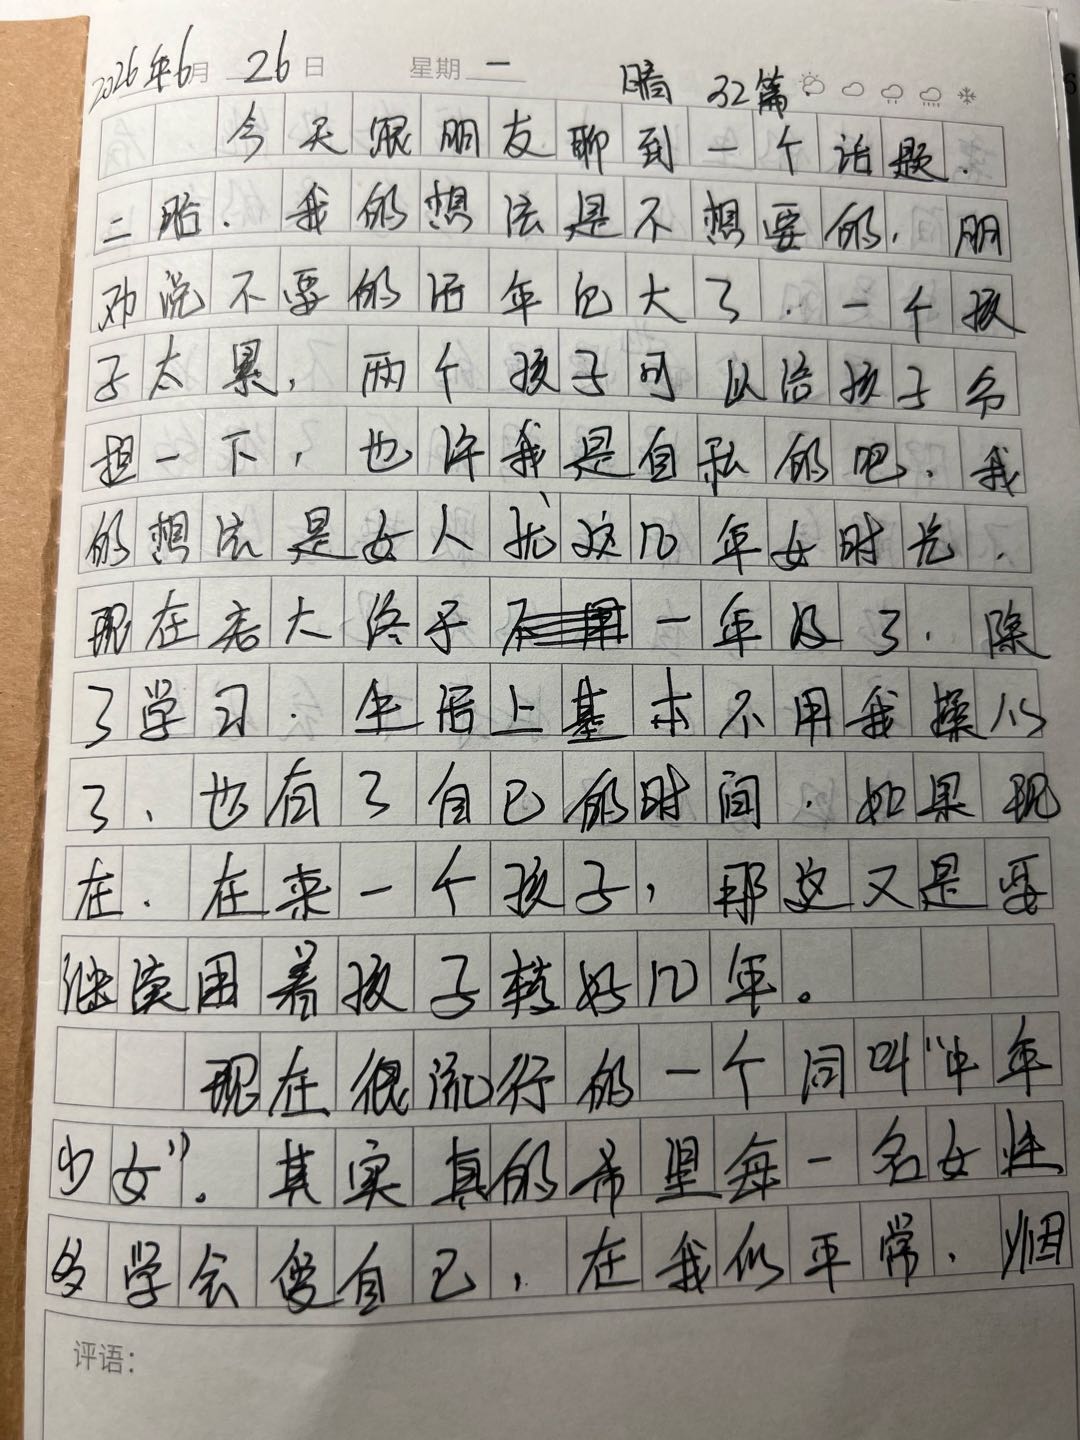 2026年6月 26日 星期一 晴 32篇.
今天跟朋友聊到一个话题.
二胎.我的想法是不想要的,朋
友说不要的话年纪大了.一个孩
子太累,两个孩子可以给孩子分
担一下,也许我是自私的吧.我
的想法是女人就这几年好时光.
现在老大终于一年级了.除
了学习.生活上基本不用我操心
了、也有了自己的时间.如果现
在.在来一个孩子,那这又是要
继续围着孩子转好几年。
现在很流行的一个词叫"中年
少女"。其实真的希望每一名女性
多学会爱自己,在我们平常.烟
评语: